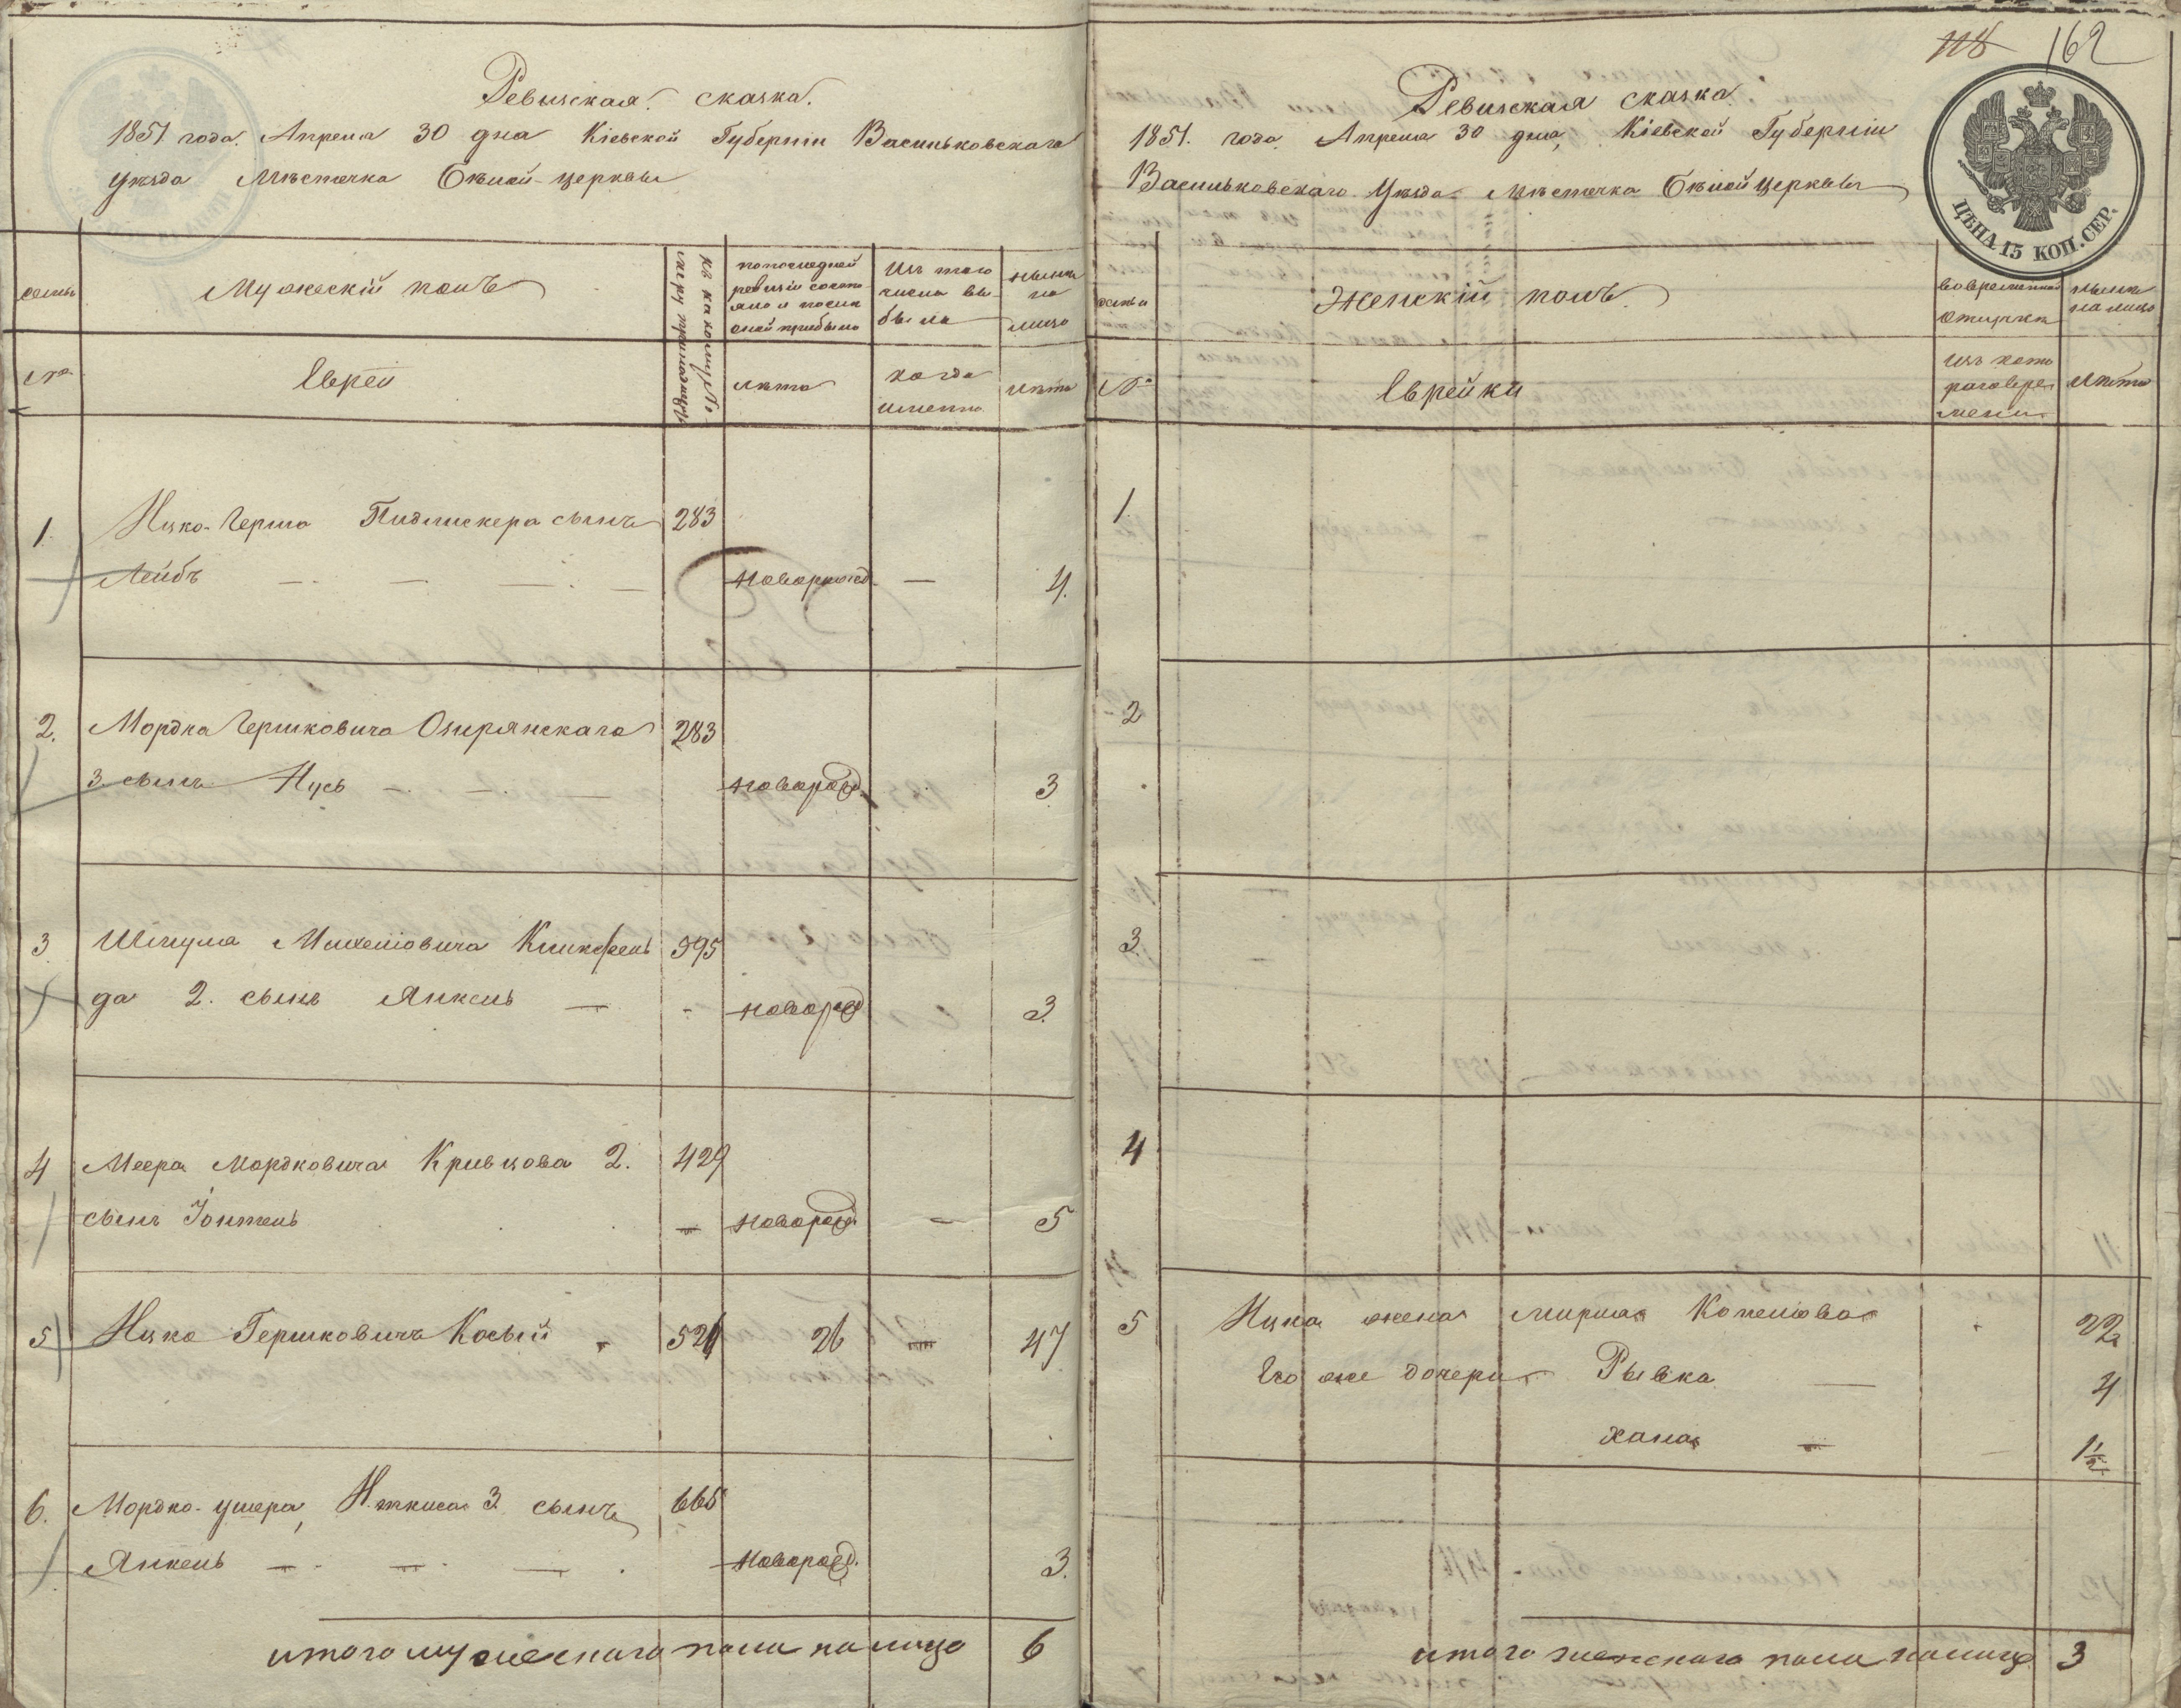 Ревизская сказка.
1851 года Апреля 30 дня Кіевской Губерніи Васильковскаго
уѣзда Мѣстечка Бѣлой-церквы
семьи
Мужескій полъ
къ какому №
симъ принадлежитъ
по последней
ревизіи состо
яло и после
оной прибыло
Изъ того
числа вы
было
ныне
на
лицо
№
Евреи
лѣта
когда
именно
лѣта
1.
Ицко-Герша Пидлискера сынъ
283
Лейбъ
новорожд
4.
2.
Мордка Гершковича Озирянскаго
283
3 сынъ Нусь
новорожд.
3
3.
Шмуля Михелiовича Клинфель
395
да 2. сынъ Янкель
новорожд
3
4
Меера Мордковича Кривцова 2.
429
сынъ Іонтель
новорожд
5
5
Ицко Гершковичъ Косый
521
26
47
6.
Мордко-ушера, 3 сынъ
665
Янкель
новорожд.
3.
итого мужескаго пола на лицо 6
118 162
Ревизская сказка.
1851. года Апреля 30 дня, Кіевской Губерніи
Васильковскаго Уѣзда Мѣстечка Бѣлой церквы
ЦѢНА 15 КОП. СЕР.
семьи
Женскій полъ.
во временной
отлучке
ныне
на лицо
№
Еврейки
изъ кото
раго вре
мени
лѣта
1.
2
3.
4
5
Ицка жена Мирля Копелiова
22
Его же дочери Рывка
4
Хана
1½
итого женскаго пола на лицо 3